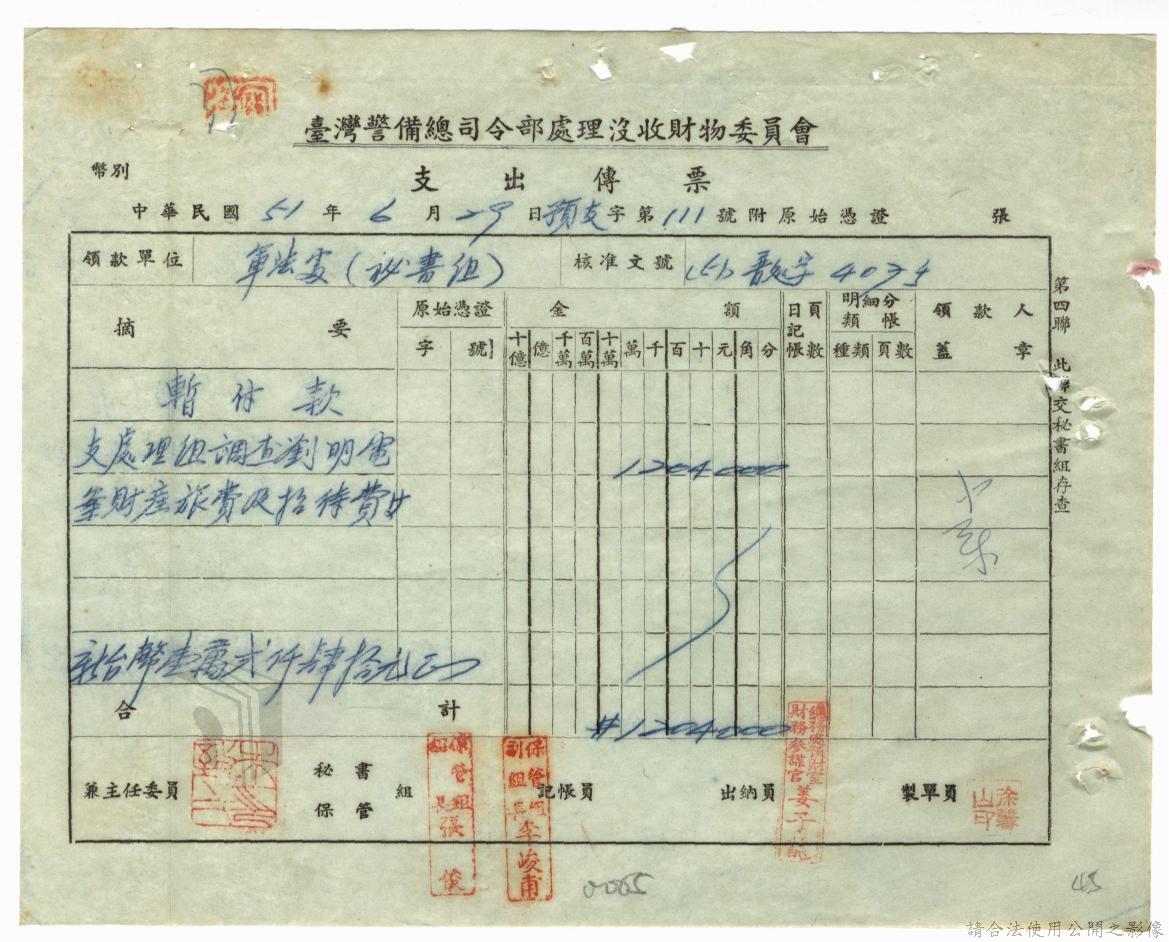 臺灣警備總司令部處理沒收財物委員會
幣別
支出傳票
中華民國51年6月29日預支字第111號附原始憑證 張
領款單位 軍法處(秘書組) 核准文號 (51)
摘要 原始憑證 金額 日記帳頁數 明細分類帳 領款人蓋章
字 號 十億 億 千萬 百萬 十萬 萬 千 百 十 元 角 分 種類 頁數
暫付款
支處理組調查劉明電
1204000
等財產旅費及招待費
新台幣壹萬弍仟肆拾元正
合計 #1204000
兼主任委員 秘書 保管 組 記帳員 出納員 製單員
保管組組長張俊
保管組副組長李峻甫
財務參謀官姜子龍
涂馨山印
第四聯 此聯交秘書組存查
0065
45
請合法使用公開之影像